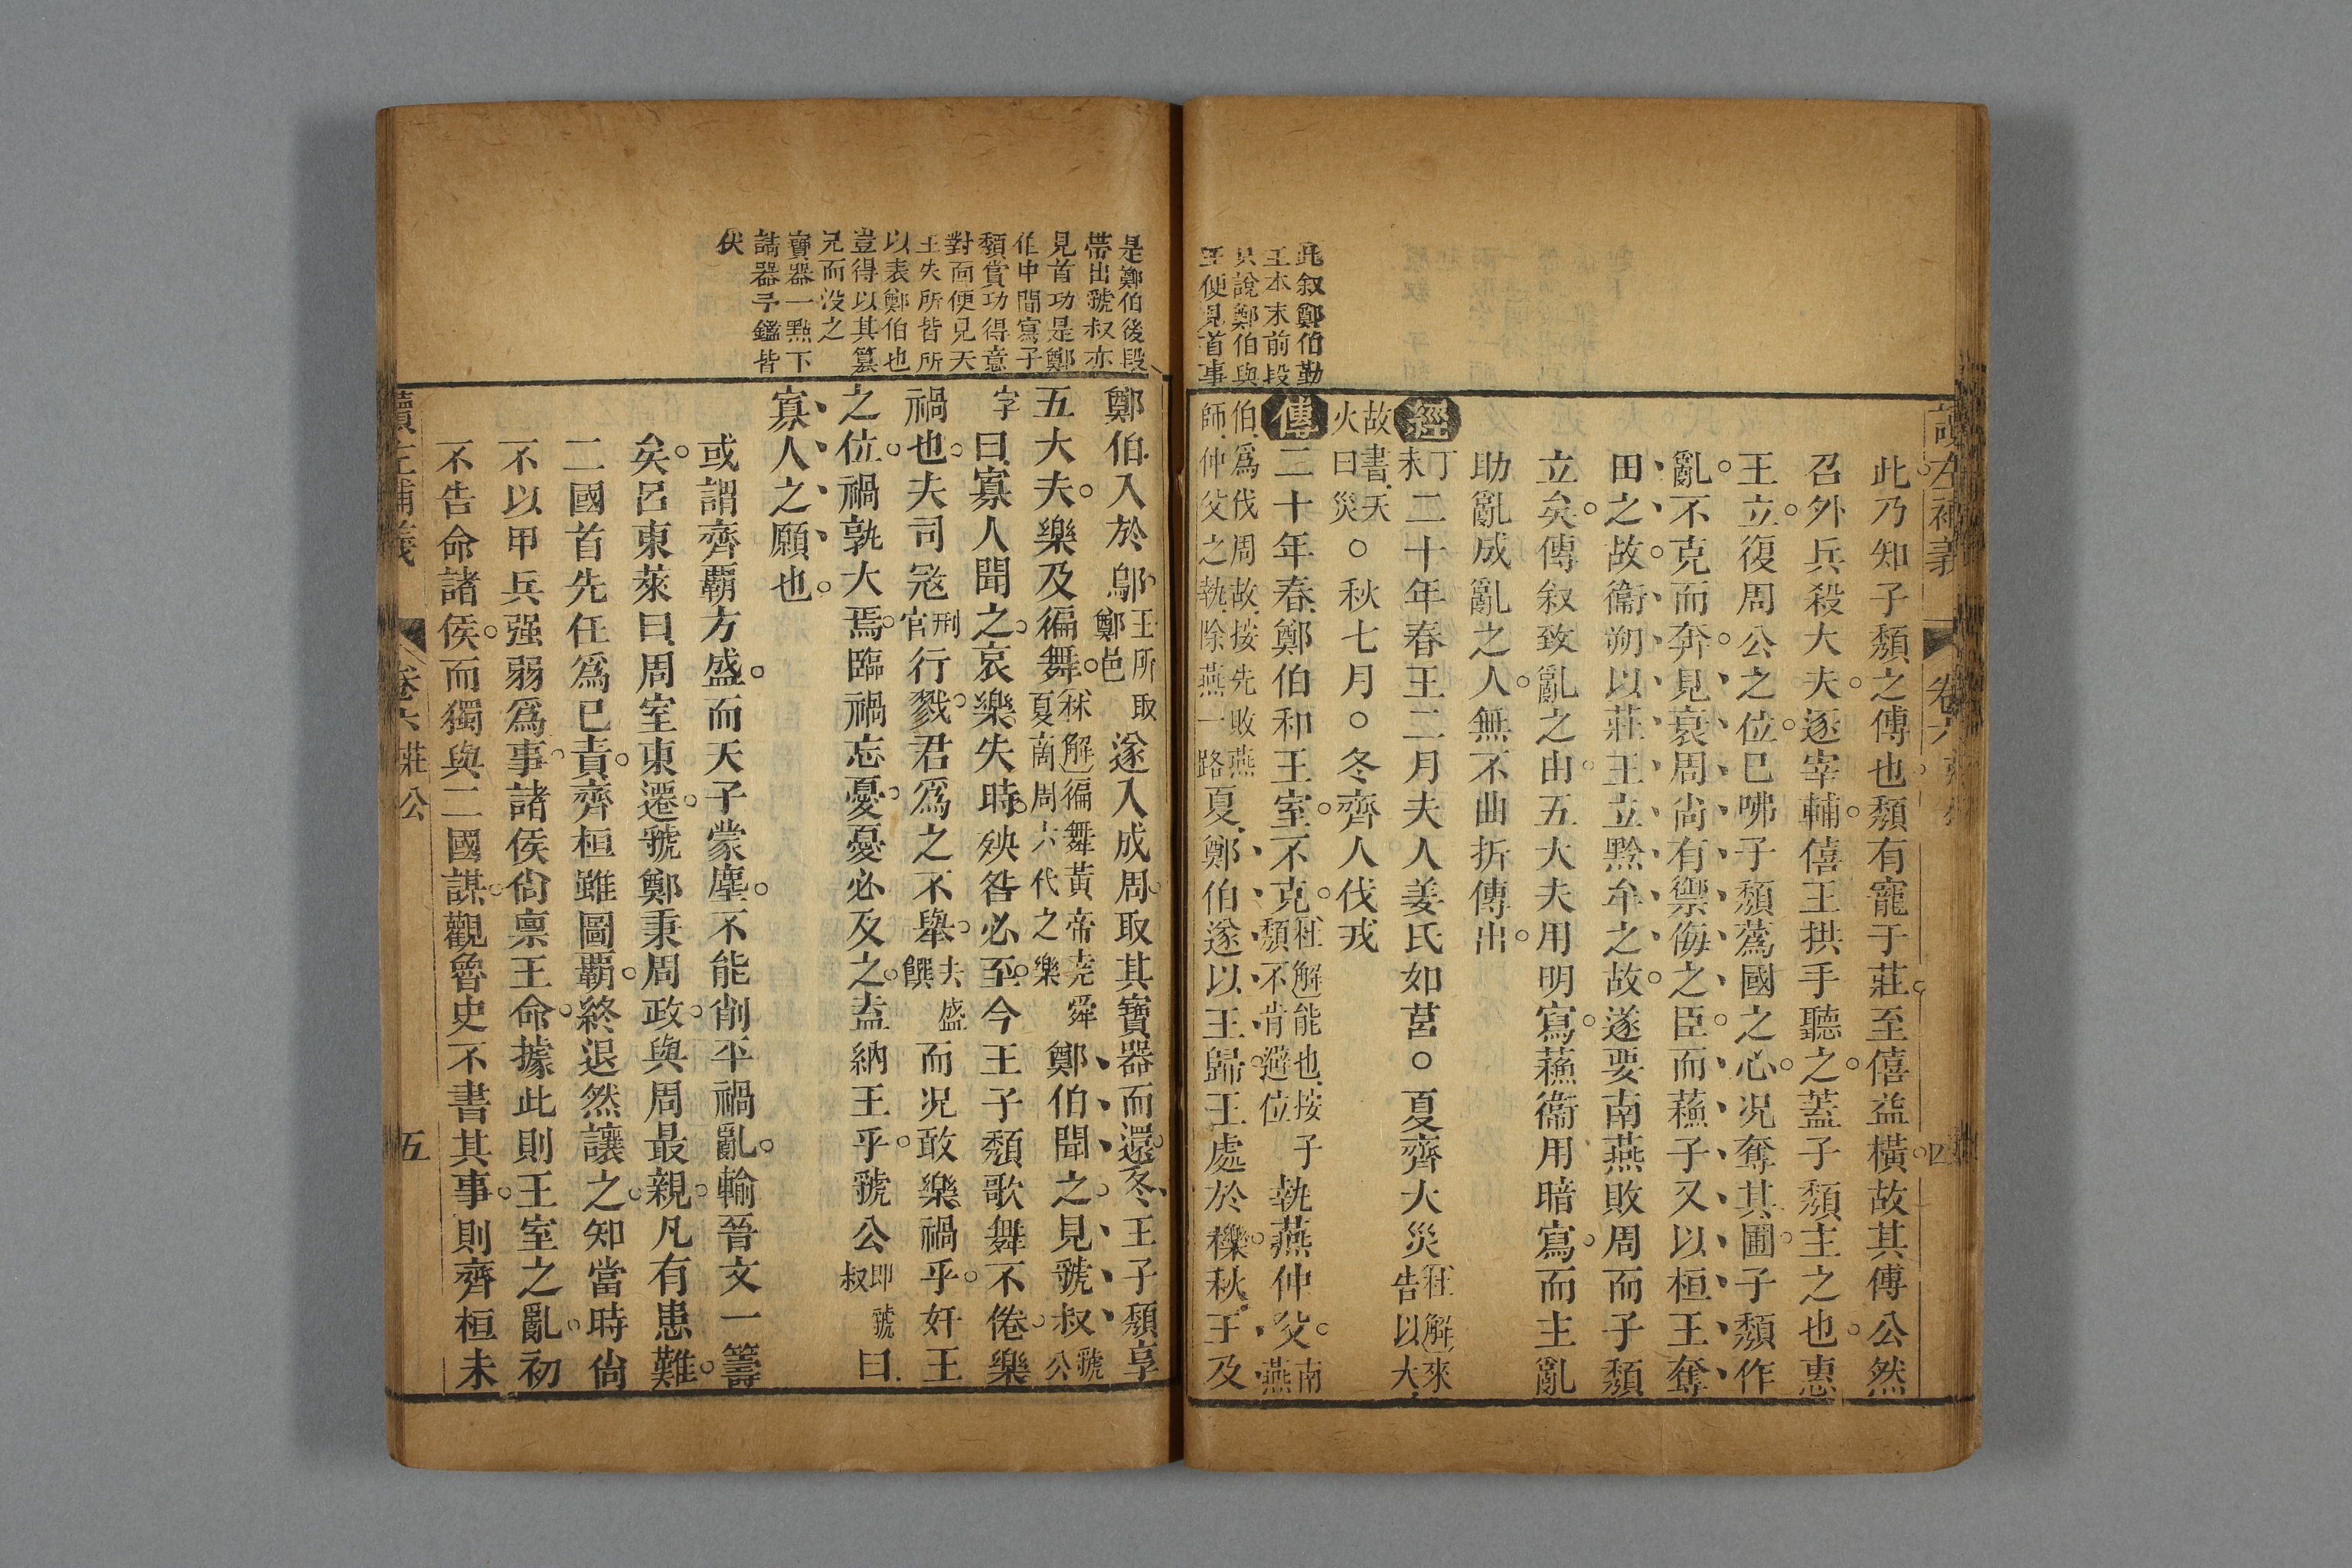 此乃知子頹之傳也頹有寵于莊至僖益橫故其傅公然
召外兵殺大夫逐宰輔僖王拱手聽之蓋子頹主之也惠
王立復周公之位已咈子頹蔿國之心况奪其圃子頹作
亂不克而奔見衰周尚有禦侮之臣而蘓子又以桓王奪
田之故衞朔以莊王立黔牟之故遂要南燕敗周而子頹
立矣傳叙致亂之由五大夫用明寫蘓衞用暗寫而主亂
助亂成亂之人無不曲折傳出
經丁未二十年春王二月夫人姜氏如莒○夏齊大災杜解來告以大
故書天火曰災○秋七月○冬齊人伐戎
傳二十年春鄭伯和王室不克杜解能也按子頹不肯避位執燕仲父南燕
伯爲伐周故按先敗燕師仲父之執除燕一路夏鄭伯遂以王歸王處於櫟秋王及
此叙鄭伯勤
王本末前段
只說鄭伯與
王便見首事
讀左補義 卷六 莊公 四
鄭伯入於鄔王所取鄭邑遂入成周取其寶器而還冬王子頹享
五大夫樂及徧舞杜解徧舞黃帝堯舜夏商周六代之樂鄭伯聞之見虢叔虢公
字曰寡人聞之哀樂失時殃咎必至今王子頹歌舞不倦樂
禍也夫司冦刑官行戮君爲之不舉去盛饌而况敢樂禍乎奸王
之位禍孰大焉臨禍忘憂憂必及之盍納王乎虢公即虢叔曰
寡人之願也
或謂齊覇方盛而天子蒙塵不能削平禍亂輸晉文一籌
矣呂東萊曰周室東遷虢鄭秉周政與周最親凡有患難
二國首先任爲已責齊桓雖圖覇終退然讓之知當時尙
不以甲兵强弱爲事諸侯尙禀王命據此則王室之亂初
不告命諸侯而獨與二國謀觀魯史不書其事則齊桓未
是鄭伯後段
帶出虢叔亦
見首功是鄭
伯中間寫子
頹賞功得意
對面便見天
王失所皆所
以表鄭伯也
豈得以其篡
兄而没之
寶器一點下
請器予鑑皆
伏
讀左補義 卷六 莊公 五